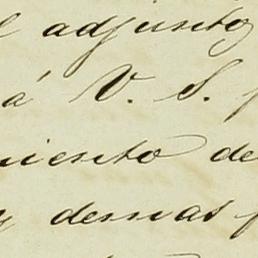 adjunto
á V. S.
miento de
y demas